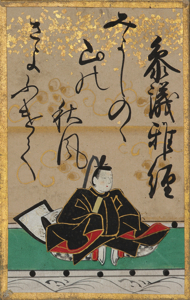 参議雅経
みよしのゝ
山の
秋風
さよふけて